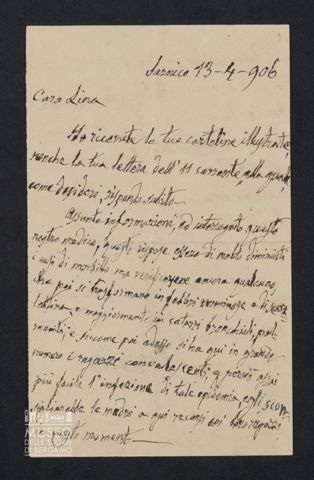 Sarnico 13-4-906
Cara Lina
Ho ricevute le tue cartoline illustrate,
nonchè la tua lettera dell'11 corrente, alla quale,
come desideri, rispondo subito.
Assunte informazioni, ed interrogato questo
nostro medico, questi rispose essere di molto diminuiti
i casi di morbillo ma verificarsene ancora qualcuno,
che poi si trasformano in febbri
lattina, e maggiormente in catarri bronchiali, pol
moniti, e siccome poi adesso si ha qui in grande
numero i ragazzi convalescenti, e perciò assai
più facile l'infezione di tale epidemia, egli scon
siglierebbe le madri a quì recarsi coi loro ragazzi
in questo momento.
MUSEO
DELLE STORIE
DI BERGAMO